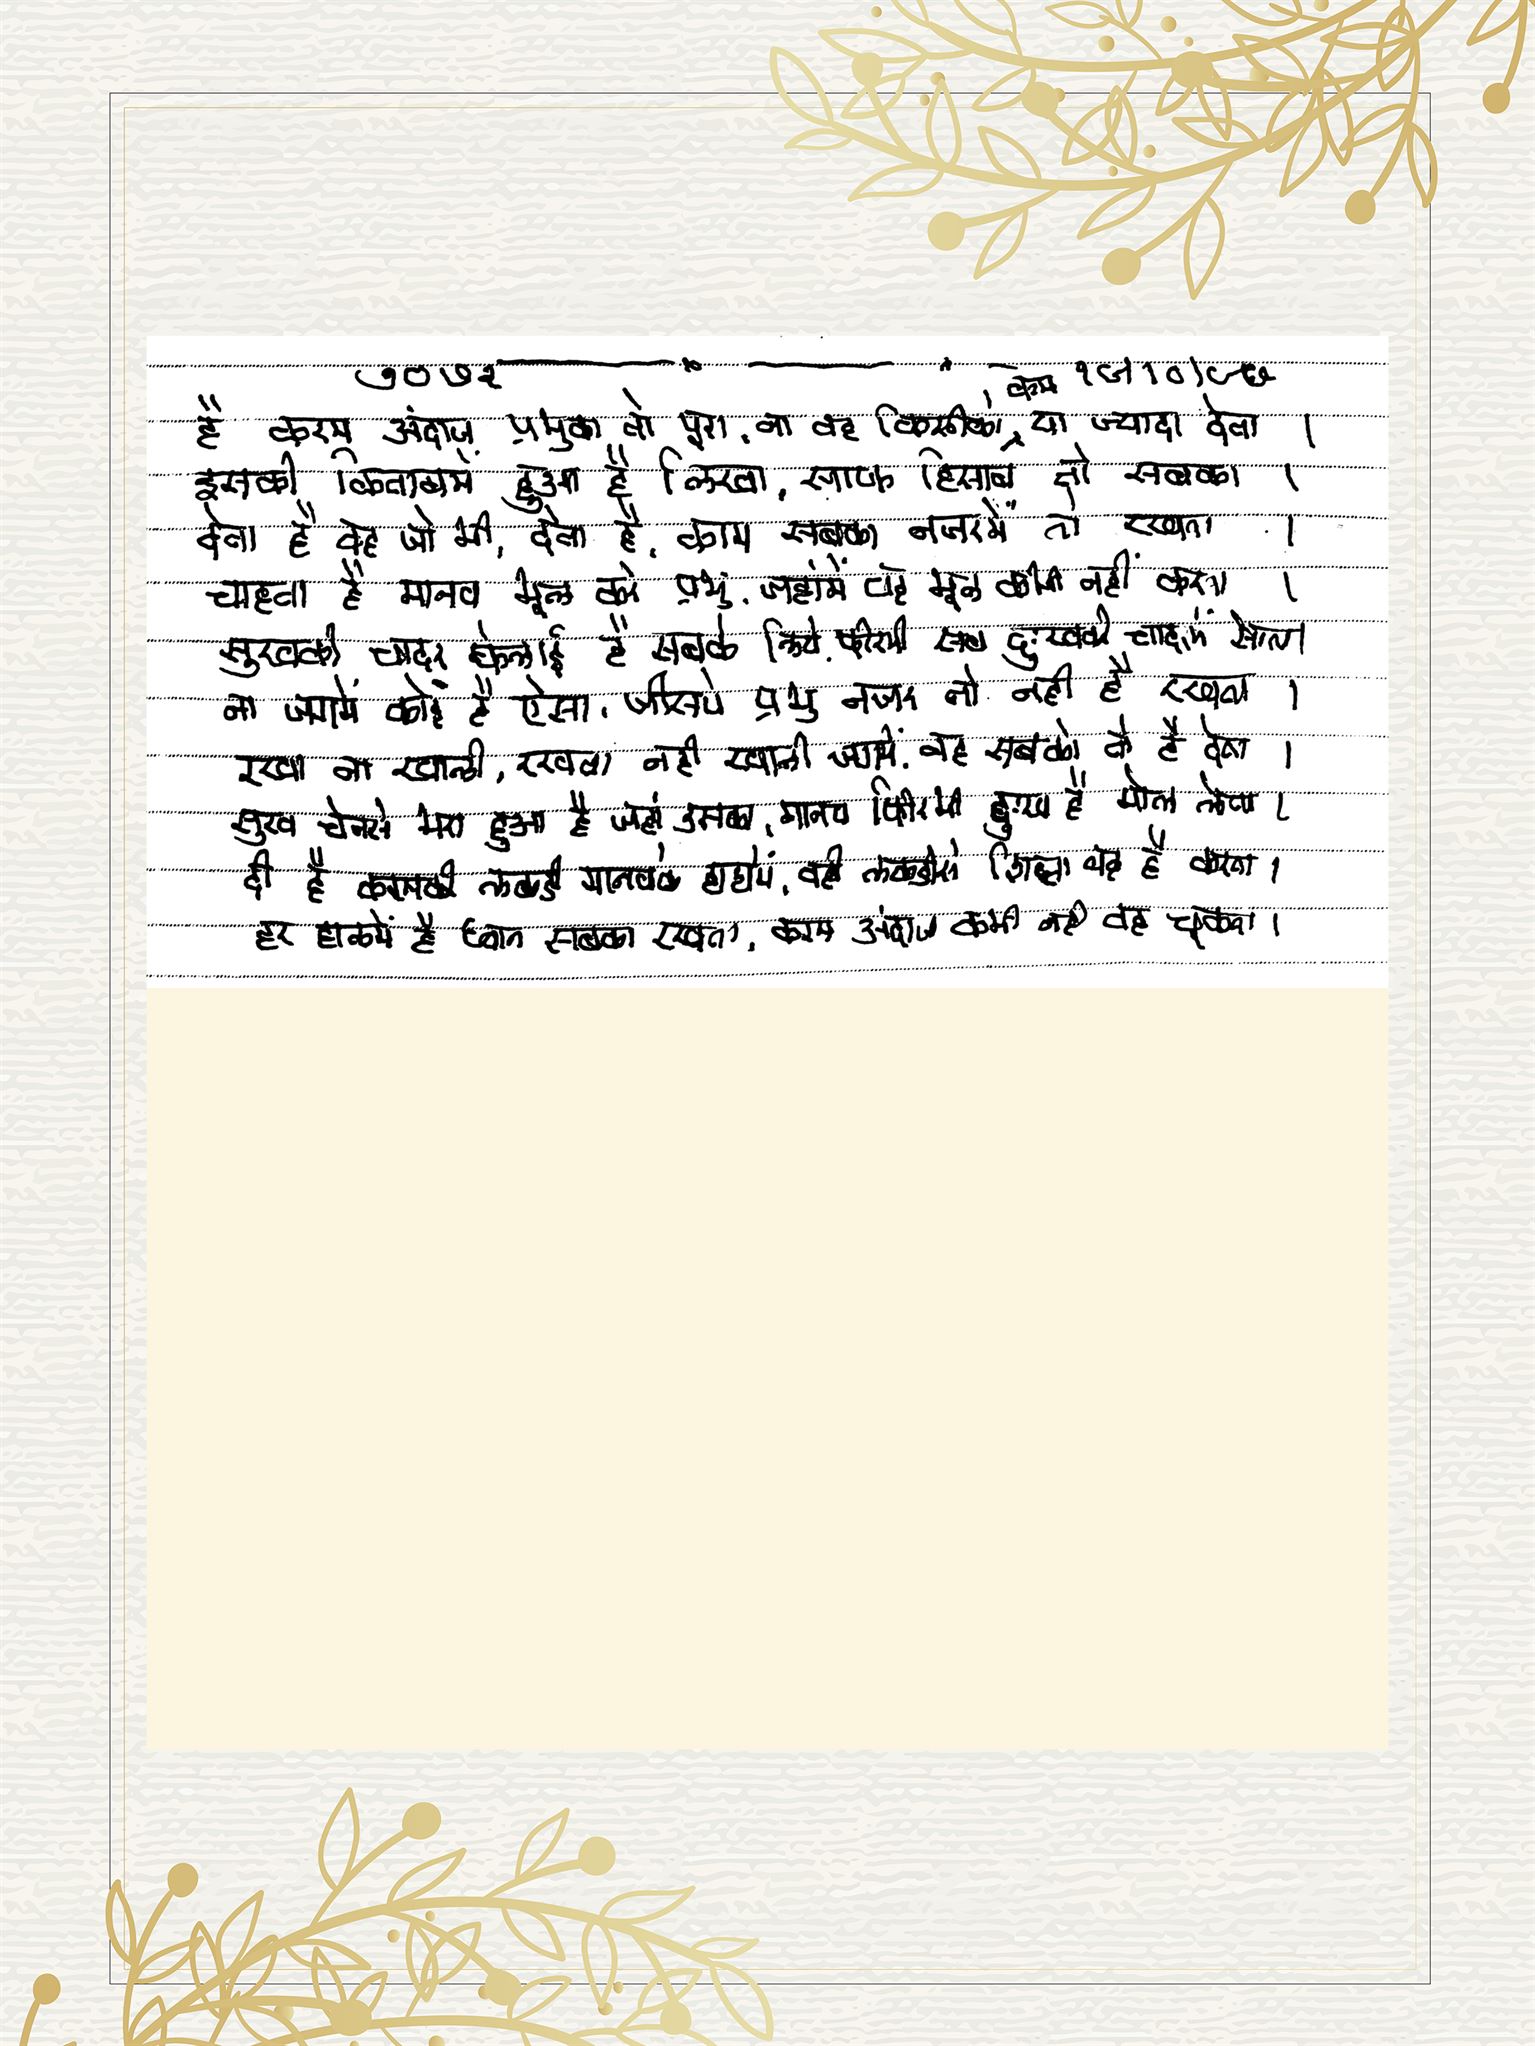 ७०७२ १७/१०/९७
है करम अंदाज प्रभुका तो पूरा, ना वह किसीको कम या ज्यादा देता ।
इसकी किताबमें हुआ है लिखा, साफ हिसाब तो सबका ।
देता है वह जो भी, देता है, काम सबका नजरमें तो रखता ।
चाहता है मानव भूल करे प्रभु, जहांमें वह भूल कभी नहीं करता ।
सुखकी चादर फेलाई है सबके लिये, फीरभी सब दुःखकी चादरमें सोता।
ना जगमें कोई है ऐसा, जीसपे प्रभु नजर तो नही है रखता ।
रखा ना खाली, रखता नही खाली जगमें, वह सबको तो है देता ।
सुख चेनसे भरा हुआ है जहां उसका, मानव फिरभी दुःख है मोल लेता ।
दी है करमकी लकडी मानवके हाथोमें, वही लकडीसे वह है करता ।
हर हालमें है ध्यान सबका रखता, करम अंदाज कभी नही वह चूकता ।